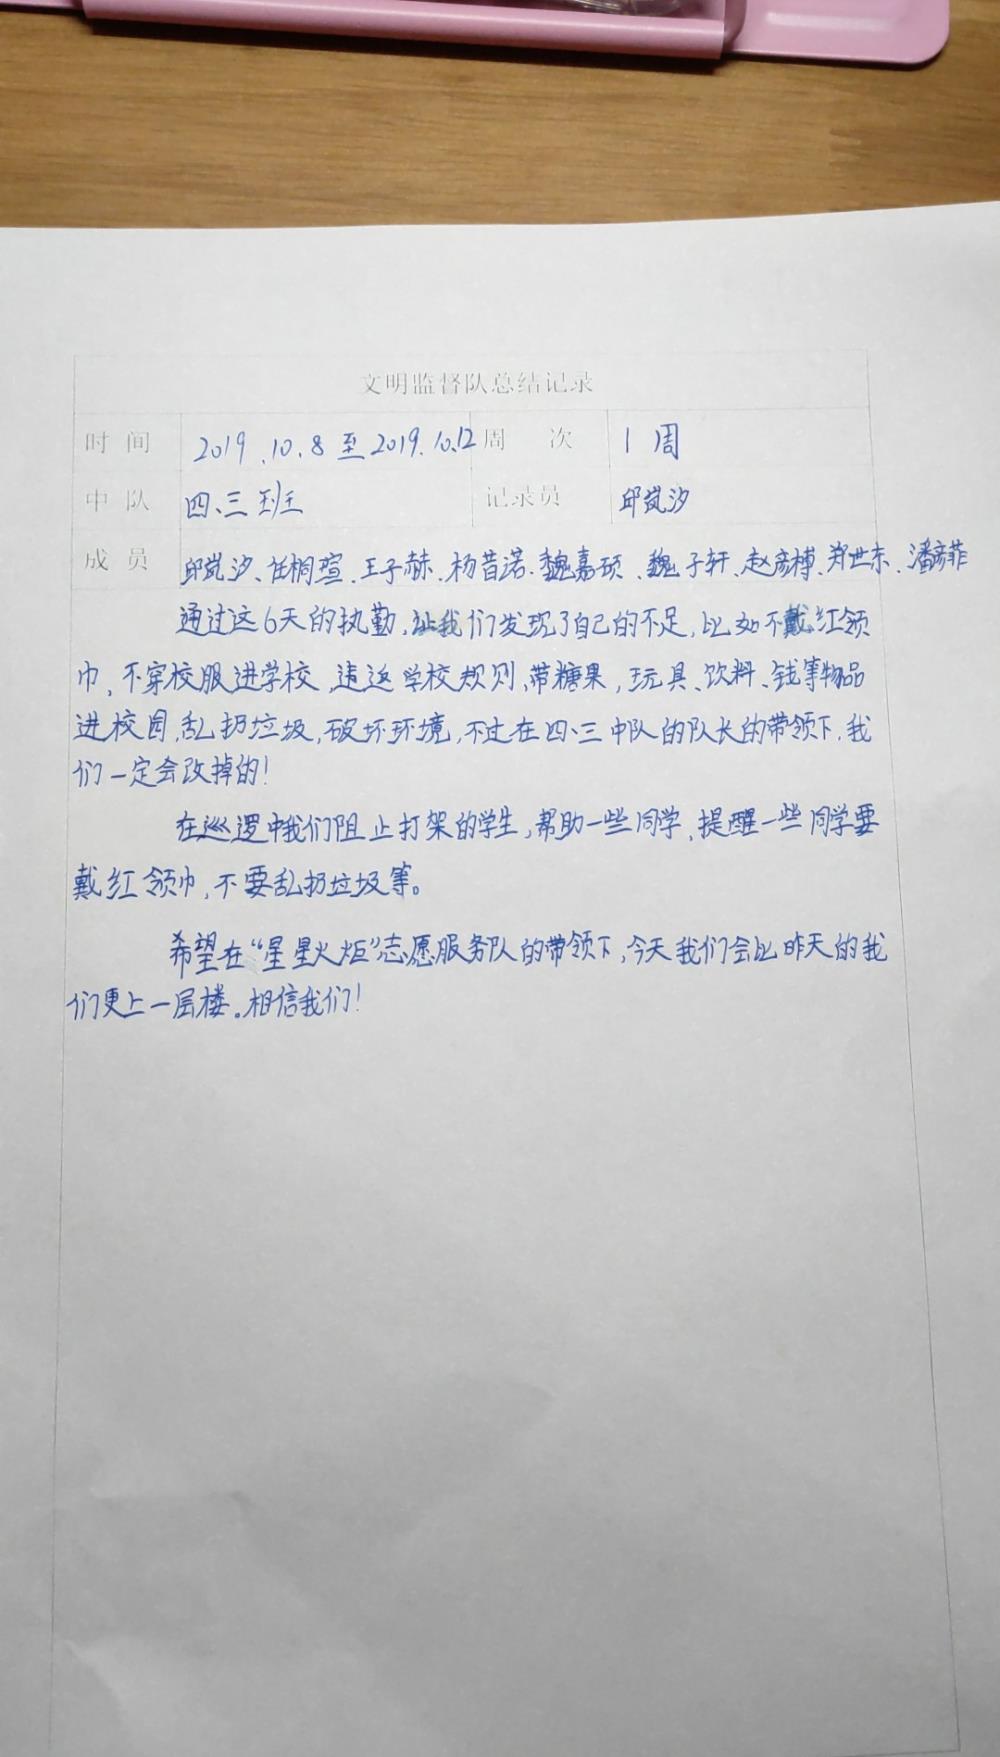 文明监督队总结记录
时间 2019.10.8至2019.10.12 周次 1周
中队 四、三班 记录员 邱岚汐
成员 邱岚汐、任桐瑄、王子赫、杨昔诺、魏嘉硕、魏子轩、赵彦榑、郑世东、潘彦菲
通过这6天的执勤,让我们发现了自己的不足,比如不戴红领
巾、不穿校服进学校、违返学校规则、带糖果,玩具、饮料、钱等物品
进校园,乱扔垃圾,破坏环境,不过在四、三中队的队长的带领下,我
们一定会改掉的!
在巡逻中我们阻止打架的学生,帮助一些同学,提醒一些同学要
戴红领巾,不要乱扔垃圾等。
希望在“星星火炬”志愿服务队的带领下,今天我们会比昨天的我
们更上一层楼。相信我们!